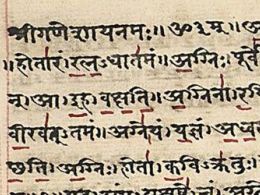 श्रीगणेशायनमः॥ॐ३म्॥अ
॥होतारंरत्नऽधातमं॥अग्निःपूर्वे
आइहवक्षति॥अग्निना
वीरवत्ऽतमं॥अग्नेयंयज्ञंअध्व
छति॥अग्निःहोताकविऽक्रतुः